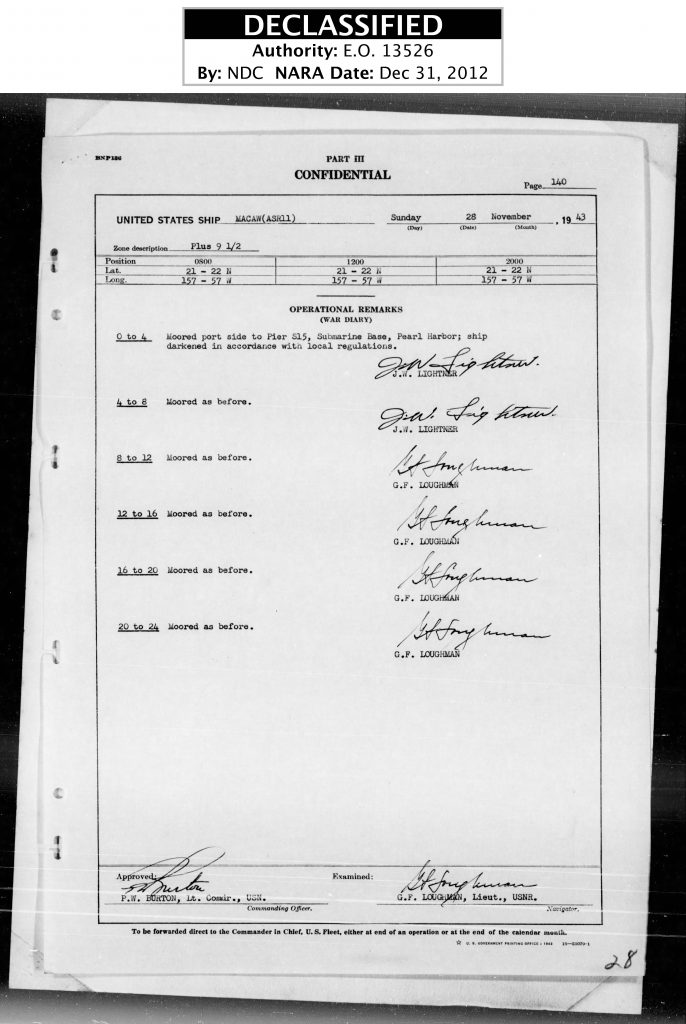 DECLASSIFIED
Authority: E.O. 13526
By: NDC NARA Date: Dec 31, 2012
PART III
CONFIDENTIAL
Page 140
UNITED STATES SHIP MACAW(ASR11) Sunday 28 November , 1943
(Day) (Date) (Month)
Zone description Plus 9 1/2
Position 0800 1200 2000
Lat. 21 - 22 N 21 - 22 N 21 - 22 N
Long. 157 - 57 W 157 - 57 W 157 - 57 W
OPERATIONAL REMARKS
(WAR DIARY)
0 to 4 Moored port side to Pier S15, Submarine Base, Pearl Harbor; ship
darkened in accordance with local regulations.
J.W. Lightner.
J.W. LIGHTNER
4 to 8 Moored as before.
J.W. Lightner.
J.W. LIGHTNER
8 to 12 Moored as before.
G F Loughman
G.F. LOUGHMAN
12 to 16 Moored as before.
G F Loughman
G.F. LOUGHMAN
16 to 20 Moored as before.
G F Loughman
G.F. LOUGHMAN
20 to 24 Moored as before.
G F Loughman
G.F. LOUGHMAN
Approved: Examined:
PW Burton G F Loughman
P.W. BURTON, Lt. Comdr., USN. G.F. LOUGHMAN, Lieut., USNR.
Commanding Officer. Navigator.
To be forwarded direct to the Commander in Chief, U.S. Fleet, either at end of an operation or at the end of the calendar month.
U. S. GOVERNMENT PRINTING OFFICE : 1942
28